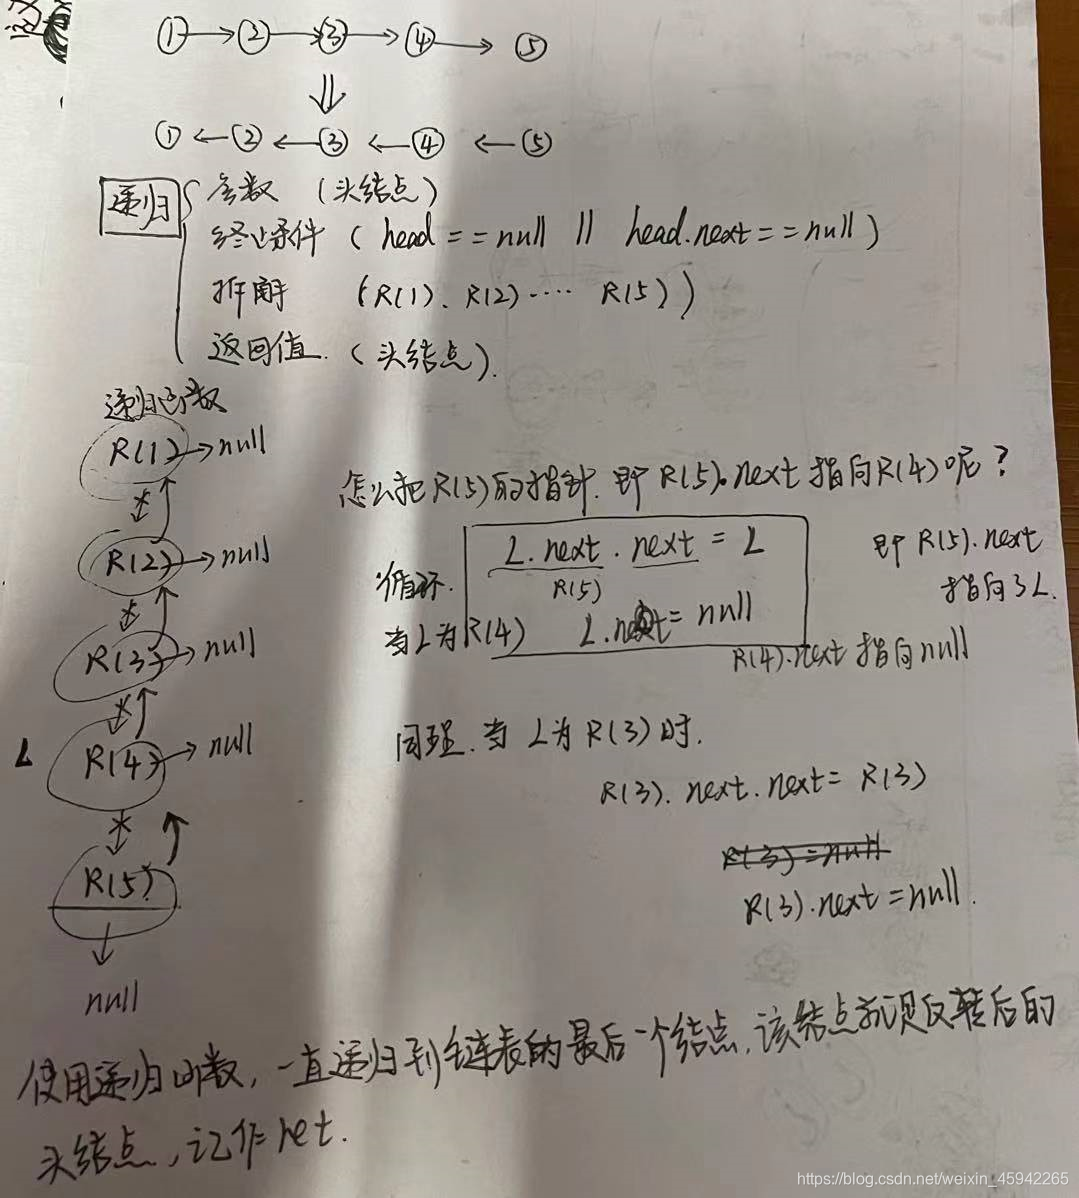 ① → ② → ③ → ④ → ⑤
⇓
① ← ② ← ③ ← ④ ← ⑤
递归
参数 (头结点)
终止条件 ( head == null || head.next == null )
拆解 (R(1)、R(2)····· R(5))
返回值. (头结点).
递归函数
R(1) → null
R(2) → null
R(3) → null
L R(4) → null
R(5)
null
怎么把R(5)的指针. 即 R(5).next 指向R(4)呢?
循环.
当L为R(4)
L.next.next = L
R(5)
L.next = null
即 R(5).next
指向了L.
R(4).next 指向null
同理. 当 L为 R(3)时.
R(3).next.next = R(3)
R(3)=null
R(3).next = null.
使用递归函数, 一直递归到链表的最后一个结点, 该结点就是反转后的
头结点, 记作ret.
https://blog.csdn.net/weixin_45942265